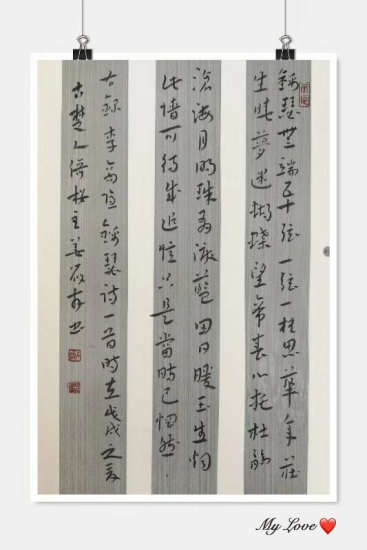 錦瑟無端五十弦一弦一柱思華年莊
生曉夢迷蝴蝶望帝春心托杜鵑
滄海月明珠有淚藍田日暖玉生烟
此情可待成追憶只是當時已惘然
右錄李商隐錦瑟詩一首時在戊戌之夏
古楚人主姜書
My Love❤️